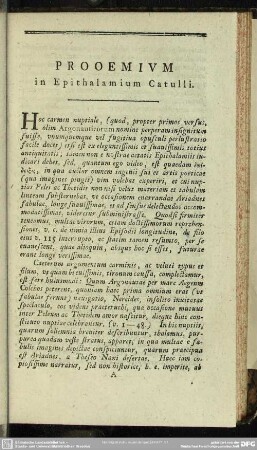 PROOEMIVM
in Epithalamium Catulli.
Hoc carmen nuptiale, (quod, propter primos versus,
olim Argonauticorum nomine perperam insignitum
fuisse, unumquemque vel fugitiva opusculi perlustratio
facile docet) etsi est ex elegantissimis et suavissimis totius
antiquitatis, tamen non ex nostrae aetatis Epithalamiis iudicari
debet, sed, quantum ego video, est quaedam
in qua auctor omnem ingenii sui et artis poeticae
(qua imagines pingit) vim videtur experiri, et cui nuptiae
Pelei et Thetidis non nisi velut materiam et tabulam
linteam substernebat, et occasionem enarrandae Ariadnes
fabulae, longe suavissimae, et ad sensus delectandos accommodatissimae,
videretur subministrasse. Quodsi firmiter
teneamus, multas virorum, etiam doctissimorum reprehensiones,
v. c. de nimia illius Episodii longitudine, de filo
eius v. 115 interrupto, et statim tamen resumto, per se
evanescent, quae alioquin, aliquo hoc si esset, futurae
erant longe verissimae.
Caeterum argumentum carminis, ac veluti typus et
filum, ut quam brevissimis, tironum caussa, complectamur,
est fere huiusmodi: Quum Argonautae per mare Aegeum
Colchos peterent, quoniam haec prima omnium erat (ut
fabulae ferunt) navigatio, Nereides, insolito inusitatae
spectaculo, eos videndi praeterveehi, qua occasione mutuus
inter Peleum ac Thetidem amor nascitur, diesque huic constituto
nuptiae celebrantur. (v. 1—48.) In his nuptiis,
quarum solemnia breviter describuntur, thalamus, purpurea
quadam veste stratus, apparet, in qua multae e fabulis
imagines depictae conspiciuntur, quarum praecipua
est Ariadnes, a Theseo Naxi desertae. Haec iam copiosissime
narratur, sed non historice, h. e. imperite, ab
A